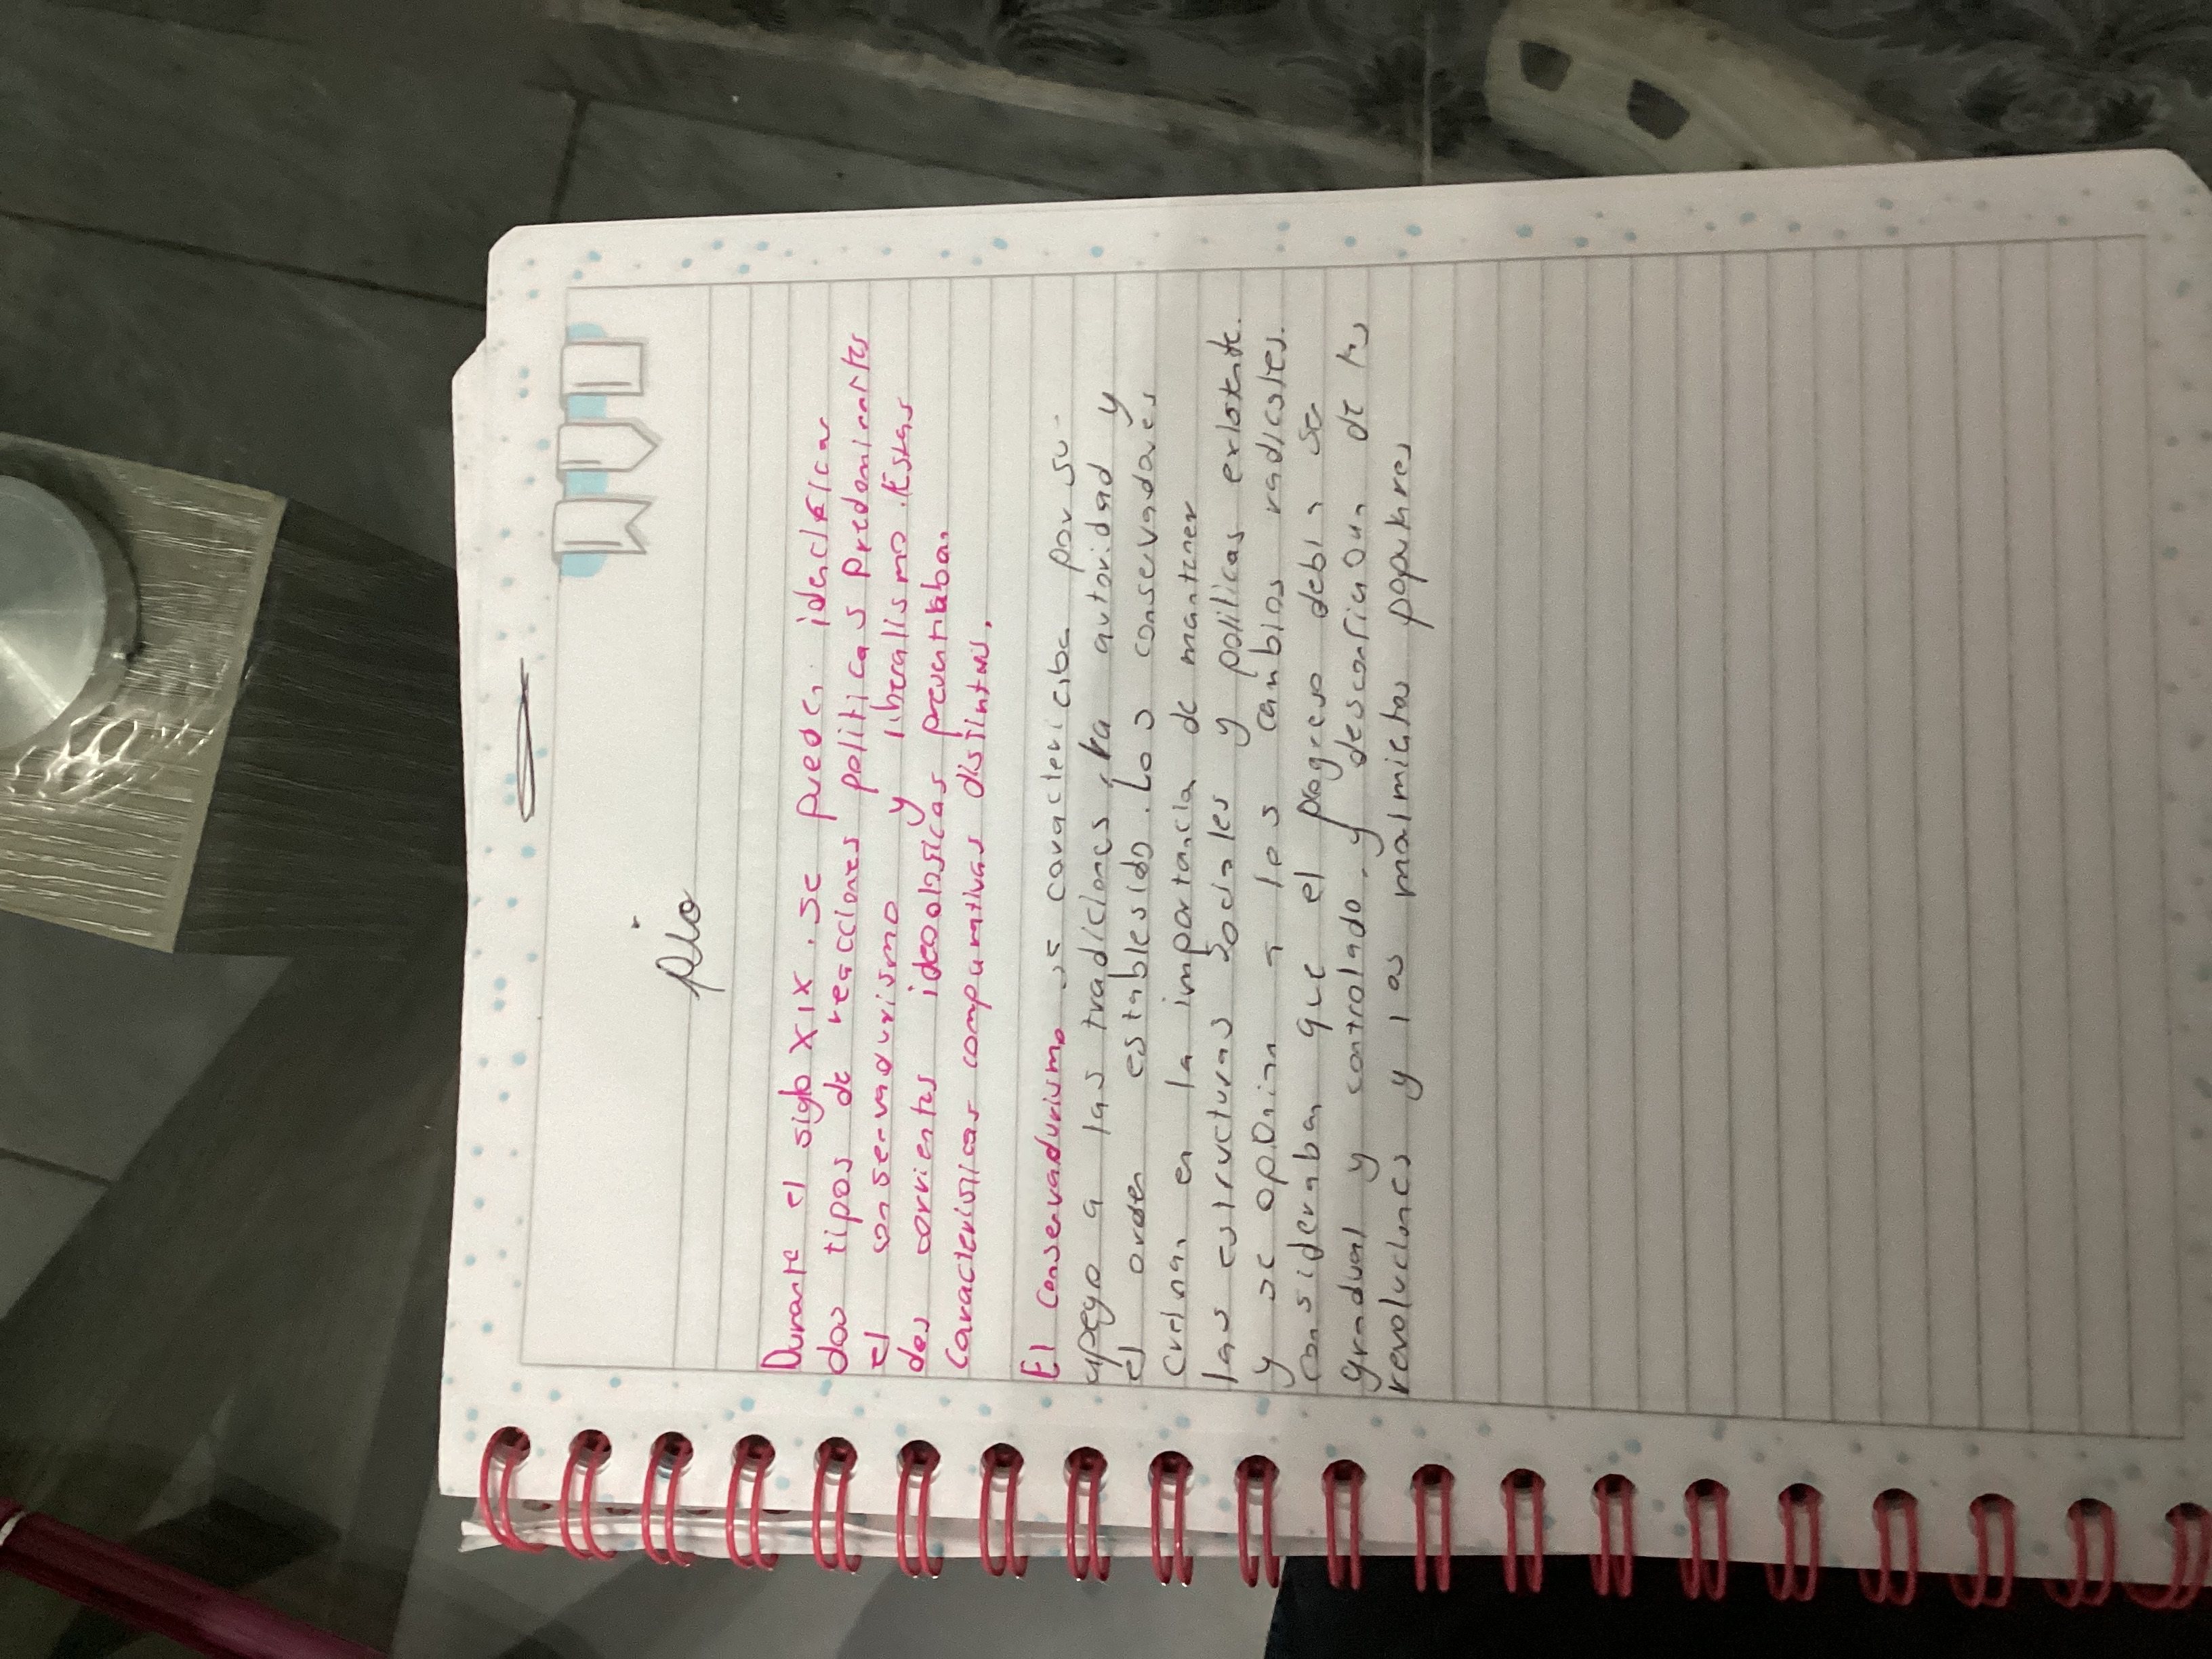 Durante el siglo XIX. se pueden identificar
dos tipos de reacciones politicas predominantes
el conservadurismo y liberalismo. Estas
dos corrientes ideologicas presentaban
Caracteristicas comparativas distintas.
El conservadurismo se caracterizaba por su
apego a las tradiciones, la autoridad y
el orden establesido. Los conservadores
creían en la importancia de mantener
las estructuras sociales y políticas existente.
y se oponian a los cambios radicales.
consideraban que el progreso debia ser
gradual y controlado. y desconfiaban de las
revoluciones y los movimientos populares